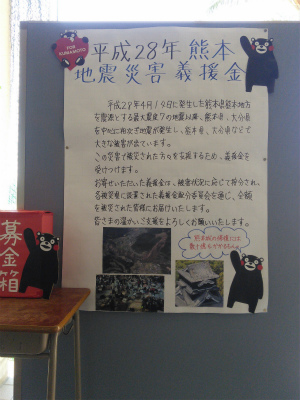 FOR KUMAMOTO
平成28年熊本
地震災害義援金
平成28年4月14日に発生した熊本県熊本地方
を震源とする最大震度7の地震以降、熊本県、大分県
を中心に相次ぎ地震が発生し、熊本県、大分県などで
大きな被害が出ています。
この災害で被災された方々を支援するため、義援金を
受けつけます。
お寄せいただいた義援金は、被害状況に応じて按分され、
各被災県に設置された義援金配分委員会を通じ、全額
を被災された皆様にお届けいたします。
皆さまの温かいご支援をよろしくお願いいたします。
熊本城の修復には
数十億もかかるのよ
募金箱